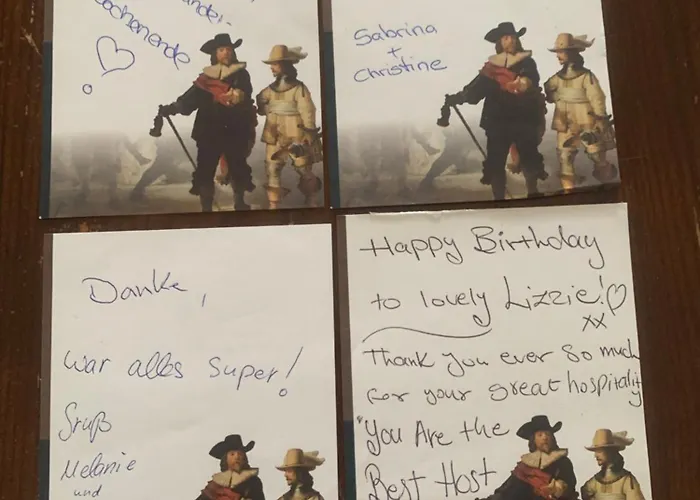 Wochenende
Sabrina
+
Christine
Danke,
war alles super!
Gruß
Melanie
und
Happy Birthday
to lovely Lizzie! ♡
xx
Thank you ever so much
for your great hospitality
"You Are the
Best Host